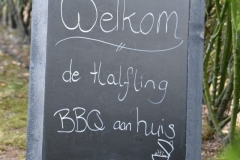 Welkom
de Halfling
BBQ aan huis